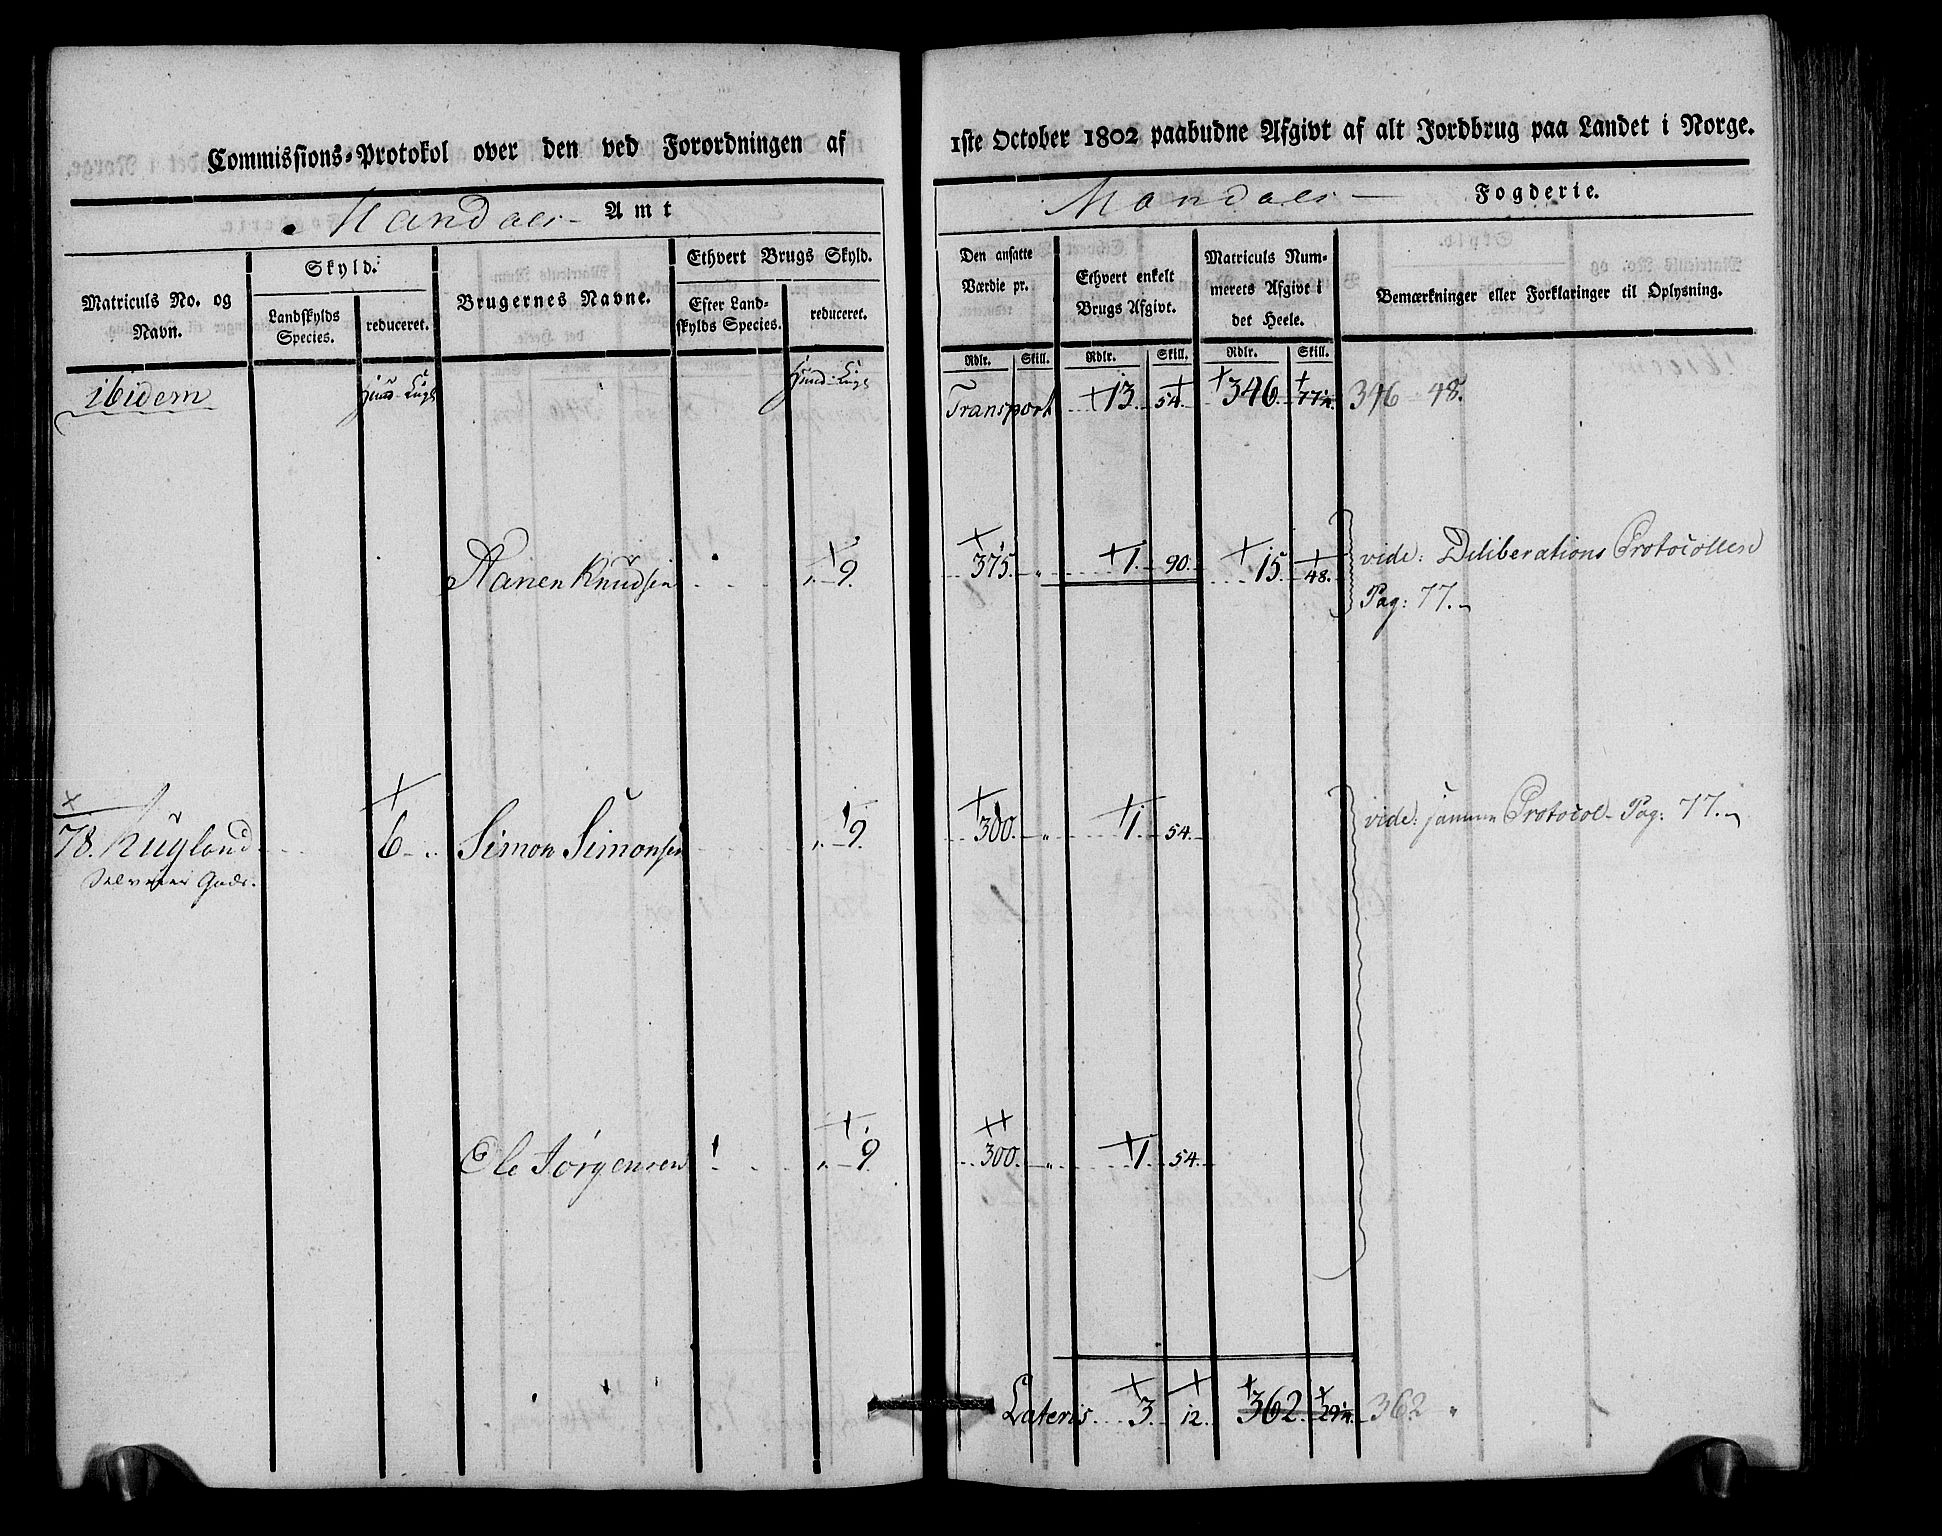 Commissions-Protokol over den ved Forordningen af 1ste October 1802 paabudne Afgivt af alt Jordbrug paa Landet i Norge.
Mandals Amt
Mandals Fogderie.
Matriculs No. og Navn.
Skyld.
Landskylds Species.
reduceret.
Brugernes Navne.
Ethvert Brugs Skyld.
Efter Landskylds Species.
reduceret.
Den ansatte Værdie pr.
Rdlr. Skill.
Ethvert enkelt Brugs Afgivt.
Rdlr. Skill.
Matriculs Nummerets Afgivt i det Heele.
Rdlr. Skill.
Bemærkninger eller Forklaringer til Oplysning.
ibidem
Transport 13. 54. 346. 346 48.
Knudsen 9. 375. 1. 90. 15. 48. vide: Deliberations Protocollen
Pag: 77.
78. 6 Simon Simonsen 9. 300. 1. 54. vide: samme Protocol Pag: 77.
Ole Jörgensen 9. 300. 1. 54.
Lateris 3. 12. 362. 362